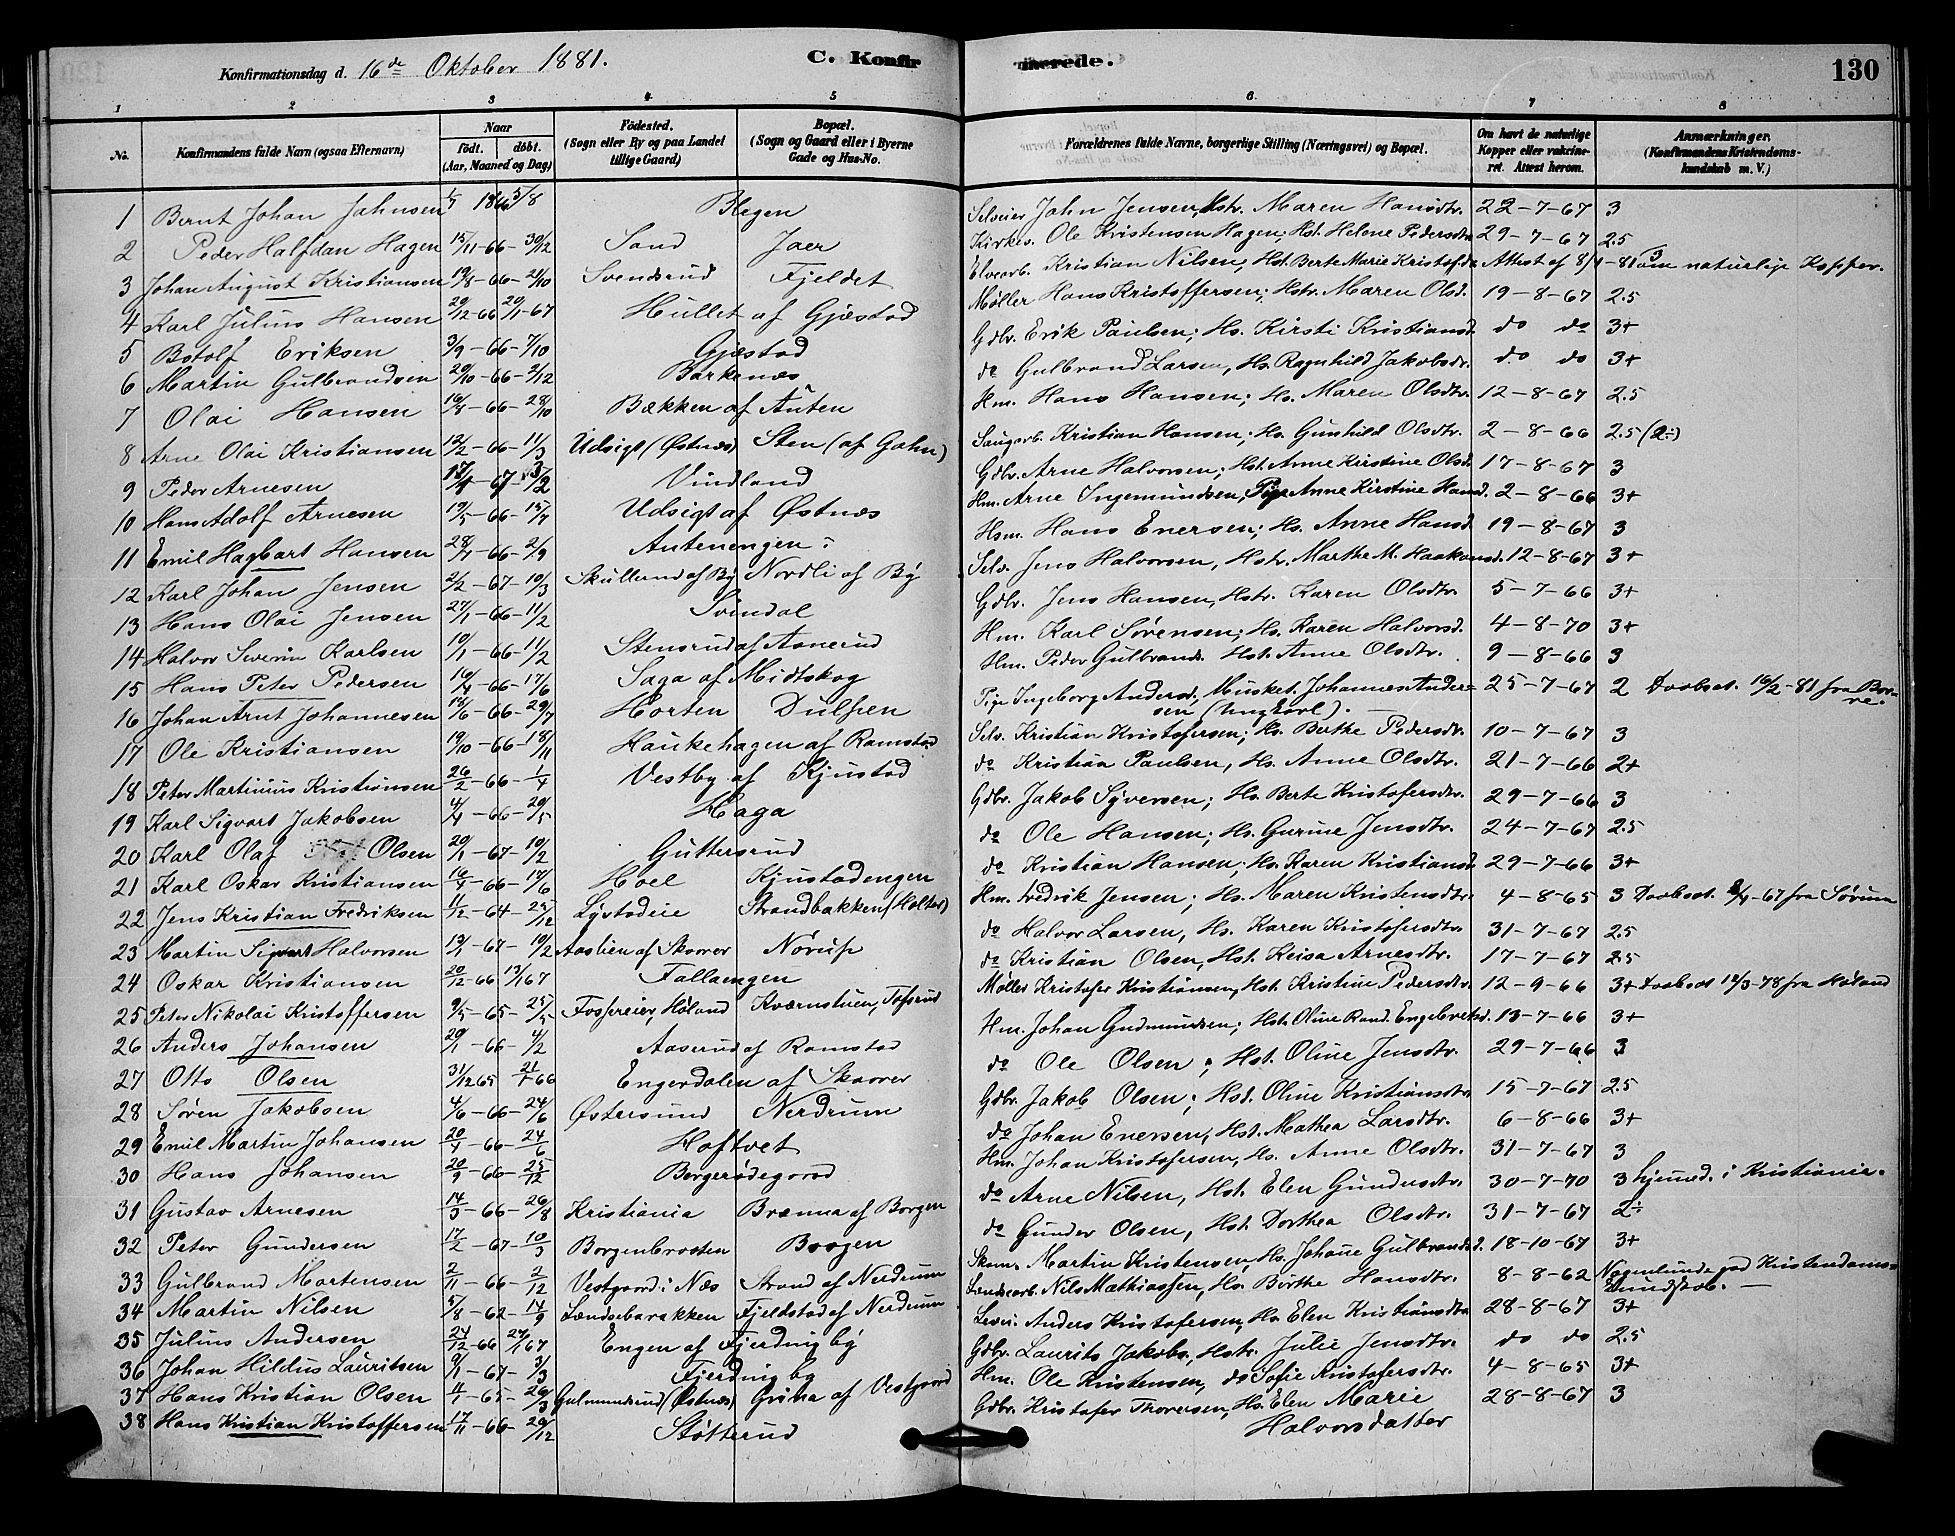 Konfirmationsdag d. 16de Oktober 1881. C. Konfirmerede. 130
1 2 3 4 5 6 7 8
No. Konfirmandens fulde Navn (ogsaa Efternavn) Naar født. døbt. (Aar, Maaned og Dag) Fødested. (Sogn eller By og paa Landet tillige Gaard) Bopæl. (Sogn og Gaard eller i Byerne Gade og Hus-No. Forældrenes fulde Navne, borgerlige Stilling (Næringsvei) og Bopæl. Om havt de naturlige Kopper eller vakcineret. Attest herom. Anmærkninger. (Konfirmandens Kristendomskundskab m. V.)
1 Bernt Johan Jahnsen 5/8 Blegen Selveier Jahn Jensen, Hstr. Maren Hansdtr. 22-7-67 3
2 Peder Halfdan Hagen 15/11-66-30/12 Sand Jaer Kirkes. Ole Kristensen Hagen; Hst. Helene Pedersdtr 29-7-67 2.5
3 Johan August Kristiansen 19/8-66-21/10 Svendsrud Fjeldet Elvearb. Kristian Nilsen, Hst. Berte Marie Kristofsd. Attest af 8/1-81 om naturlige Kopper. 3
4 Karl Julius Hansen 20/12-66 20/1-67 Hullet af Gjæstad Møller Hans Kristoffersen; Hstr. Maren Olsd. 19-8-67 2.5
5 Botolf Eriksen 3/9-66-7/10 Gjæstad Gdbr. Erik Paulsen; Hs. Kirsti Kristiansd. do do 3+
6 Martin Gulbrandsen 29/10-66-2/12 Barkenæs do Gulbrand Larsen, Hs. Ragnhild Jakobsdtr. do do 3+
7 Olai Hansen 16/8-66-28/10 Bækken af Anten Hm. Hans Hansen; Hs. Maren Olsdtr. 12-8-67 2.5
8 Arne Olai Kristiansen 12/2-66-11/3 Udsigt (Østnæs) Sten (af Gahn) Saugarb. Kristian Hansen; Hs. Gunhild Olsdtr. 2-8-66 2.5 (2÷)
9 Peder Arnesen Vindland Gdbr. Arne Halvorsen; Hst. Anne Kirstine Olsd. 17-8-67 3
10 Hans Adolf Arnesen 19/5-66-15/7 Udsigt af Østnæs Hm. Arne Ingemundsen, Pige Anne Kirstine Hansd. 2-8-66 3+
11 Emil Hagbart Hansen 28/7-66-2/9 Antenengen Hsm. Hans Enersen; Hs. Anne Hansd. 19-8-67 3
12 Karl Johan Jensen 2/2-67-10/3 Skullerud af By Nordli af By Selv. Jens Halvorsen, Hstr. Marthe M. Haakonsd. 12-8-67 3+
13 Hans Olai Jensen 27/1-66-11/2 Svindal Gdbr. Jens Hansen, Hstr. Karen Olsdtr. 5-7-66 3+
14 Halvor Severin Karlsen 10/1-66-11/2 Stensrud af Asnerud Hm. Karl Sørensen; Hs. Karen Halvorsd. 4-8-70 3+
15 Hans Peter Pedersen 16/4-66-17/6 Saga af Midtskog Hm. Peder Gulbrands. Hst. Anne Olsdtr. 9-8-66 3
16 Johan Arnt Johannesen 15/6-66-29/7 Horten Dulpen Pige Ingeborg Andersd., Musket. Johannes Andersen (Ungkarl). 25-7-67 2 Daabsat. 16/2-81 fra Borre.
17 Ole Kristiansen 19/10-66-18/11 Haukehagen af Ramstad Selv. Kristian Kristofersen; Hs. Berthe Pedersdtr. 10-7-67 3
18 Peter Martinius Kristiansen 26/2-66-1/4 Vestby af Kjustad do Kristian Paulsen, Hs. Anne Olsdtr. 21-7-66 2+
19 Karl Sigvart Jakobsen 4/4-66-20/5 Haga Gdbr. Jakob Syversen; Hs. Berte Kristofersdtr. 29-7-66 3
20 Karl Olaf Olsen 20/1-67-10/2 Guttersrud do Ole Hansen; Hs. Gurine Jensdtr. 24-7-67 2.5
21 Karl Oskar Kristiansen 16/4-66-17/6 Hoel Kjustadengen do Kristian Hansen; Hs. Karen Kristiansd. 29-7-66 3+
22 Jens Kristian Fredriksen 11/12-64-25/12 Lystadeie Strandbakken (Holter) Hm. Fredrik Jensen; Hs. Maren Kristensdtr. 4-8-65 3 Daabsat. fra Sørum
23 Martin Sigvart Halvorsen 13/1-67-10/2 Aaslien af Skovrer Nørup do Halvor Larsen, Hs. Karen Kristofersdtr. 31-7-67 2.5
24 Oskar Kristiansen 20/12-66 13/1 67 Fallaengen do Kristian Olsen, Hst. Keisa Arnesdtr. 17-7-67 2.5
25 Peter Nikolai Kristoffersen 9/5-65-25/5 Fosfereier, Høland Kværnstuen, Tofsrud Møller Kristofer Kristiansen, Hst. Kristine Pedersdtr. 12-9-66 3+ Daabsat 12/3-78 fra Høland
26 Anders Johansen 29/1-66-4/2 Aaserud af Ramstad Hm. Johan Gudmundsen; Hst. Oline Rand. Engebretsd. 13-7-66 3+
27 Otto Olsen 31/12 65 21/1 66 Engerdalen af Skovrer do Ole Olsen; Hst. Oline Jensdtr. 29-7-66 3
28 Søren Jakobsen 4/6-66-24/6 Østersund Nerdrum Gdbr. Jakob Olsen; Hst. Oline Kristiansdtr. 15-7-67 2.5
29 Emil Martin Johansen 20/4-66-24/6 Hoftvet do Johan Enersen, Hst. Mathea Larsdtr. 6-8-66 3+
30 Hans Johansen 20/9-66-25/12 Borgerødegaard Hm. Johan Kristofersen, Hs. Anne Olsdtr. 31-7-67 3
31 Gustav Arnesen 14/3-66-26/8 Kristiania Brænna af Borgen do Arne Nilsen, Hst. Elen Gundersdtr. 30-7-70 3 hjemmd. i Kristiania.
32 Peter Gundersen 17/2-67-10/3 Borgenbraaten Borgen do Gunder Olsen, Hst. Dorthea Olsdtr. 31-7-67 2÷
33 Gulbrand Martensen 2/11-66-2/12 Vestgaard i Næs Strand af Nerdrum Skom. Martin Kristensen, Hs. Johane Gulbrandsd. 18-10-67 3+
34 Martin Nilsen 5/8-62-14/9 Lændsebarakken Fjeldstad af Nerdrum Lændsearb. Nils Mathiassen, Hs. Birthe Hansdtr. 8-8-62 Nogenlunde god Kristendomskundskab.
35 Julius Andersen 24/12-66 27/1 67 Engen af Fjerdingby Leier. Anders Kristofersen, Hs. Elen Kristiansdtr 28-8-67 3+
36 Johan Hildus Lauritsen 9/1-67-3/3 Fjerdingby Gdbr. Laurits Jakobs., Hstr. Julie Jensdtr. do do 2.5
37 Hans Kristian Olsen 4/1-65-26/3 Gulmundsrud (Østnæs) Grina af Vestgaard Hm. Ole Kristensen, do Sofie Kristofersdtr. 4-8-65 3+
38 Hans Kristian Kristoffersen 17/11-66-29/12 Støtterud Gdbr. Kristofer Thoresen, Hs. Elen Marie Halvorsdatter 28-8-67 3